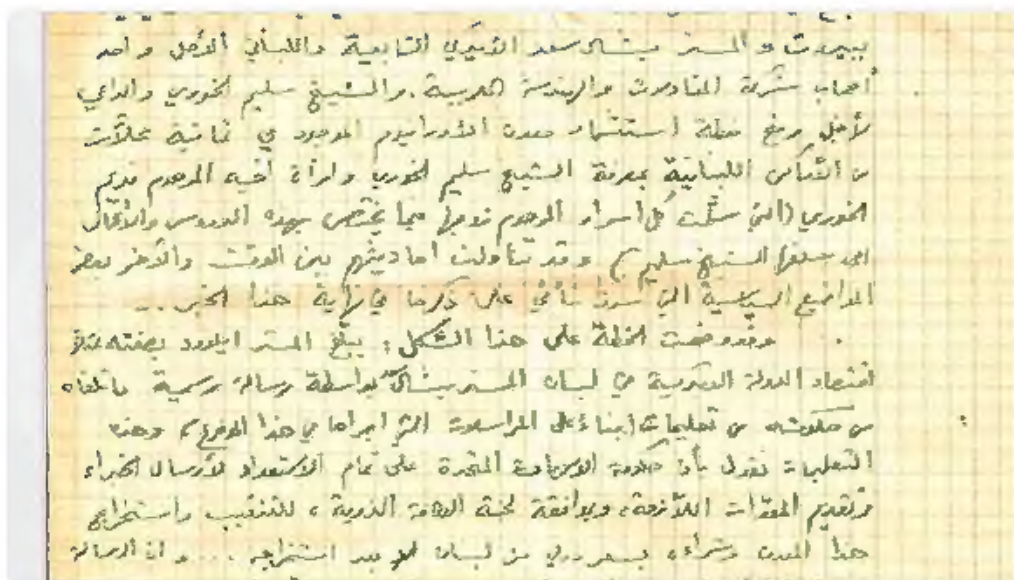 ببيروت والمستر ميشال سعد الأميركي التابعية واللبناني الأصل واحد
أصحاب شركة المقاولات والهندسة العربية. والشيخ سليم الخوري والداعي
لأجل وضع خطة استثمار معدن الأورانيوم الموجود في ثمانية محلات
من الأماكن اللبنانية بمعرفة الشيخ سليم الخوري وامرأة أخيه المرحوم نديم
الخوري (التي سلّمت كل اسرار المرحوم زوجها فيما يختص بهذه الدروس والأعمال
الى سلفها الشيخ سليم) وقد تناولت احاديثهم بين الوقت والآخر بعض
المواضيع السياسية التي سوف نأتي على ذكرها في نهاية هذا الخبر ..
وقد وضعت الخطة على هذا الشكل: يبلّغ المستر ايلوود بصفته
اقتصاد الدولة الاميركية في لبنان المستر ميشال بواسطة رسالة رسمية ما تلقاه
من حكومته من تعليمات بناء على المراسلات التي اجراها في هذا الموضوع، وهذه
التعليمات تقول بأن حكومة الولايات المتحدة على تمام الاستعداد لأرسال الخبراء
وتقديم المعدات اللازمة، وبموافقة لجنة الطاقة الذرية، للتنقيب واستخراج
هذا المعدن وشراءه بسعر دولي من لبنان بعد استخراجه .... وان الرسالة